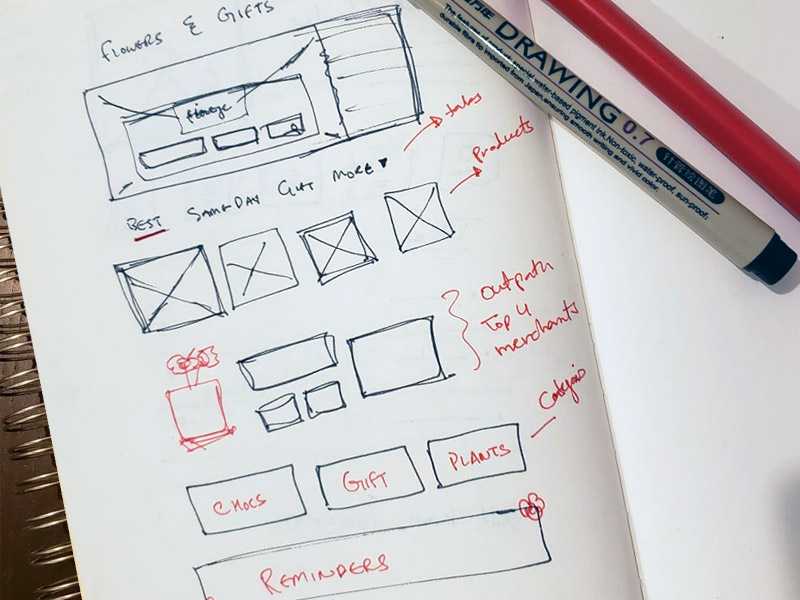 FLOWERS & GIFTS
tabs
Products
BEST SAME-DAY GIFT MORE
outpath
Top 4
merchants
CHOCS
GIFT
PLANTS
REMINDERS
DRAWING 0.7
The features of product special water-based pigment ink. Non-toxic, water-proof, sun-proof,
durable fibre tip imported from Japan, ensuring smooth writing and vivid color.